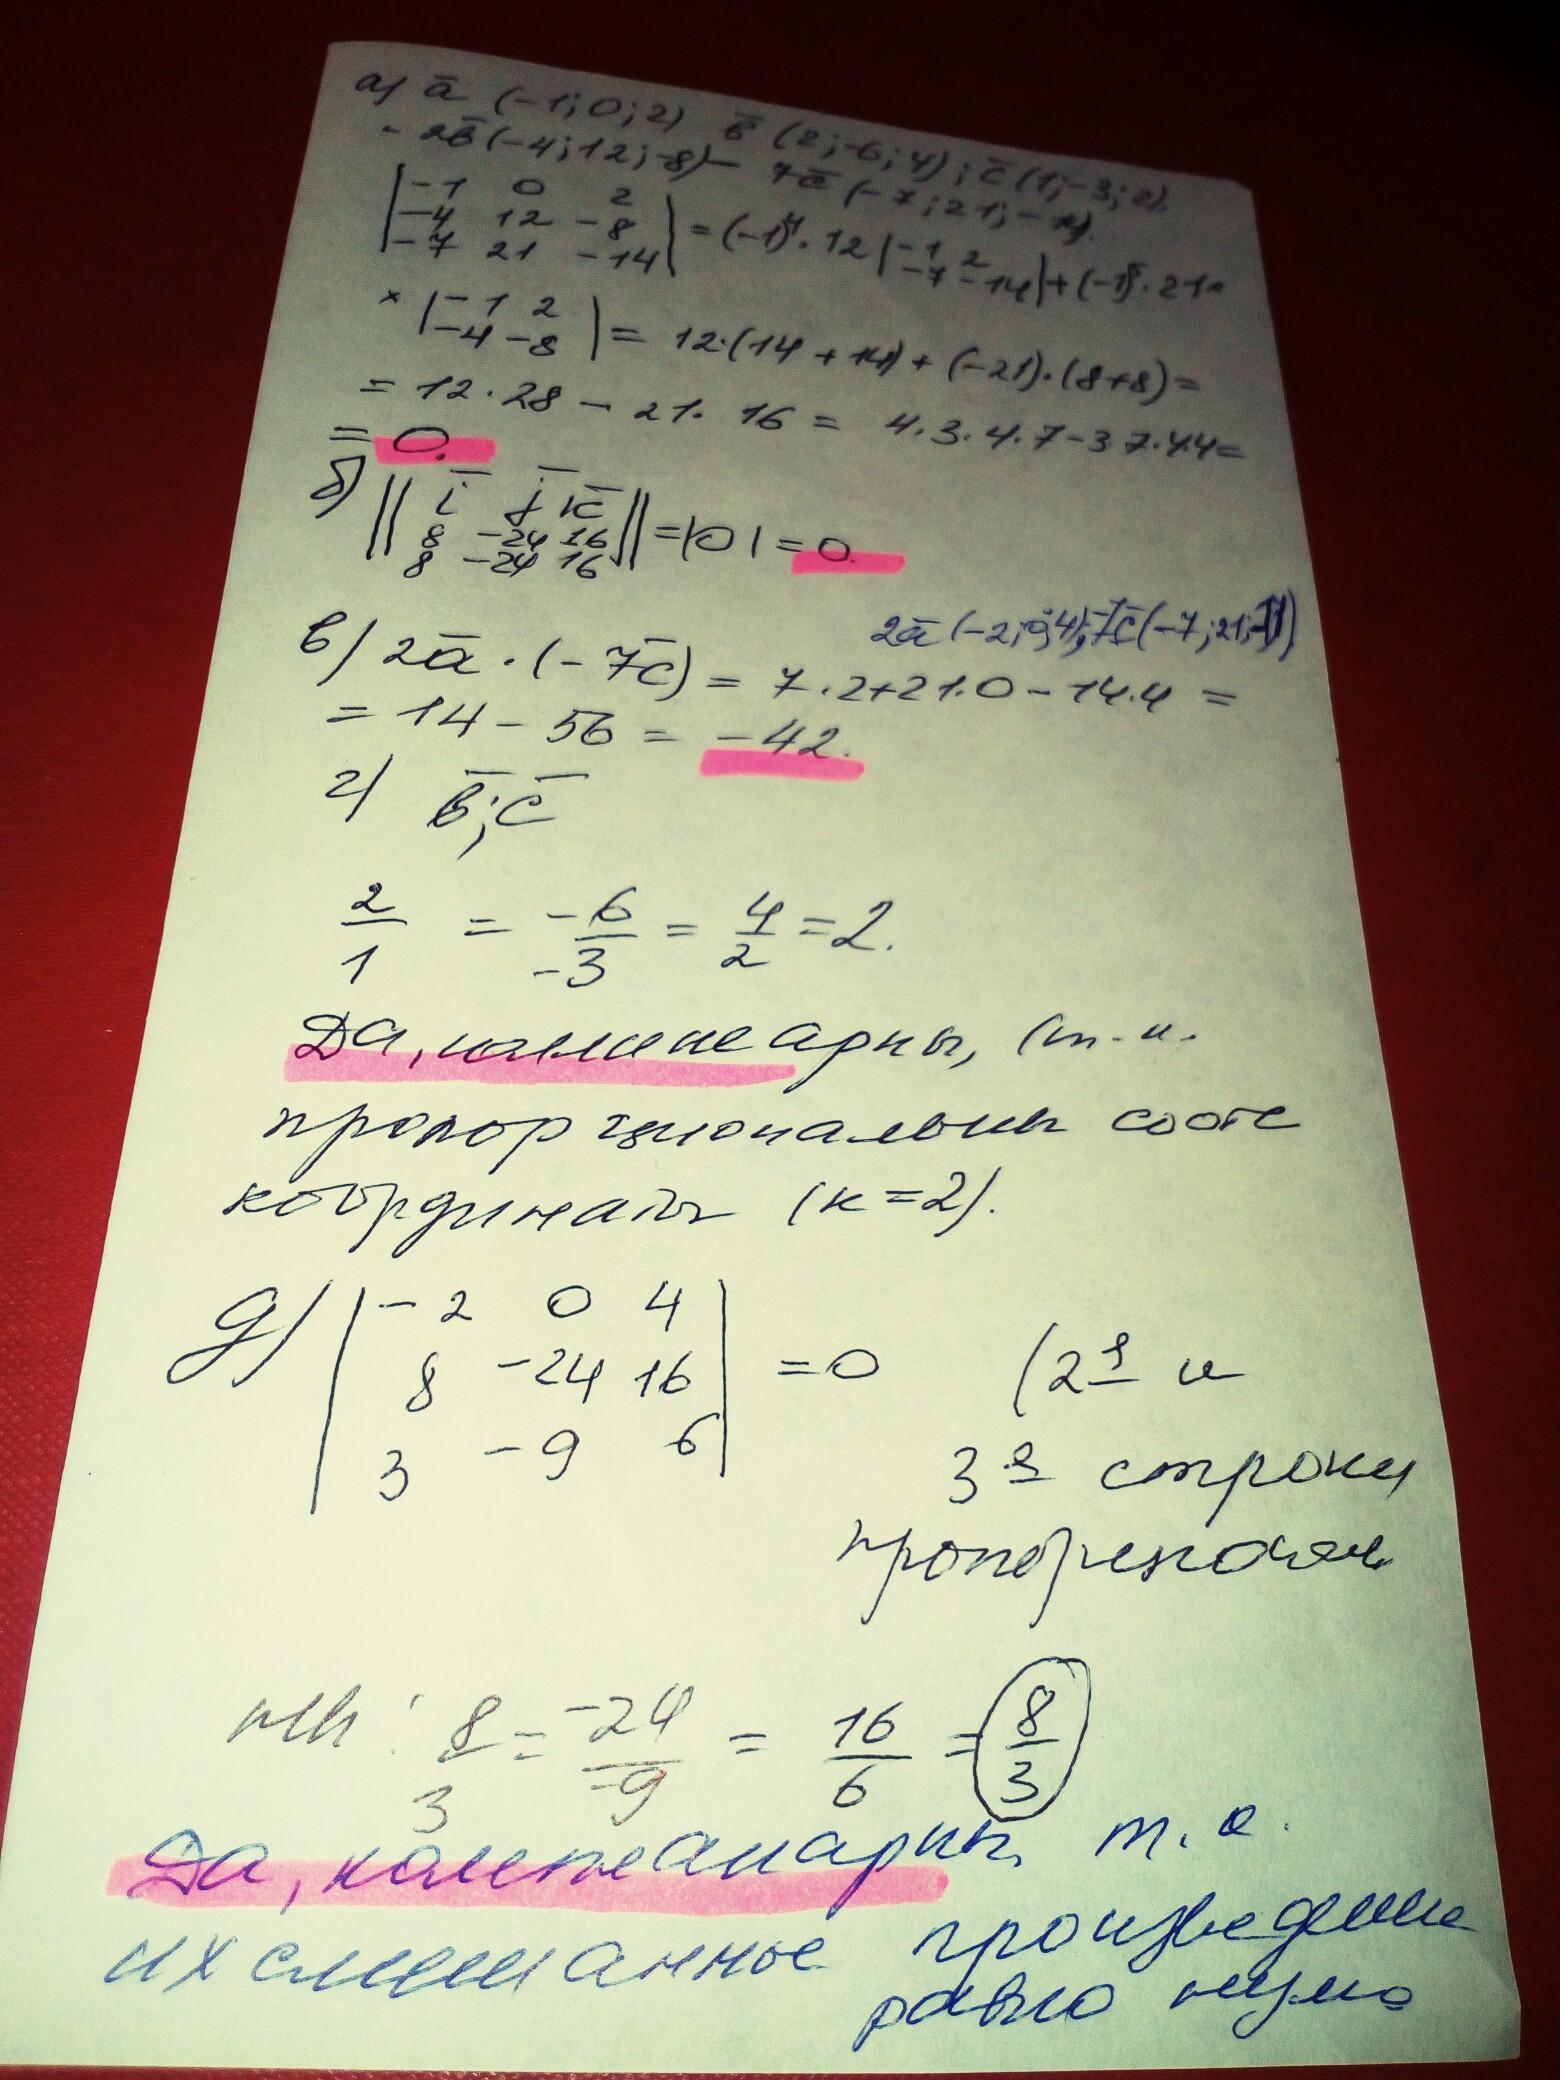 а) a̅ (-1;0;2) b̅ (2;-6;4); c̅ (1;-3;2).
-2b̅ (-4;12;-8) -7c̅ (-7;21;-14).
|-1 0 2|
|-4 12 -8| = (-1)⁴·12 |-1 2| + (-1)⁵·21·
|-7 21 -14| |-7 -14|
× |-1 2|
|-4 -8| = 12·(14+14)+(-21)·(8+8)=
= 12·28 - 21·16 = 4·3·4·7-3·7·4·4=
= 0.
б) || i̅ j̅ k̅ ||
|| 8 -24 16 || = |0| = 0.
|| 8 -24 16 ||
2a̅ (-2;0;4); -7c̅ (-7;21;-14)
в) 2a̅ · (-7c̅) = 7·2+21·0-14·4 =
= 14 - 56 = -42.
г) b̅; c̅
2/1 = -6/-3 = 4/2 = 2.
Да, коллинеарны, (т.к.
пропорциональны соотв
координаты (к=2).
д) |-2 0 4|
|8 -24 16| = 0 (2я и
|3 -9 6| 3я строки
пропорцион
ны: 8/3 = -24/-9 = 16/6 = 8/3
Да, компланарны, т.к.
их смешанное произведение
равно нулю